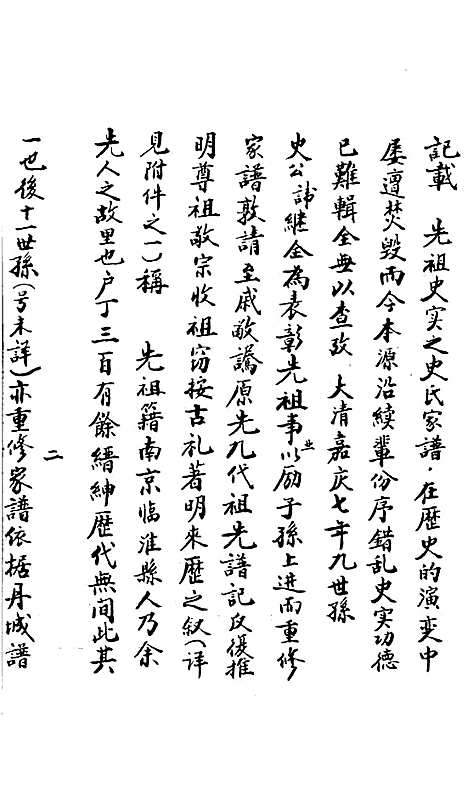 記載　先祖史实之史氏家譜．在歷史的演变中
屡遭焚毁而今本源沿续輩份序錯乱史实功德
已難輯全無以查攷　大清嘉庆七年九世孫
史公諱継全為表彰先祖事业以励子孫上进而重修
家譜敦請至戚敬謄原先九代祖先譜記反復推
明尊祖敬宗收祖窃按古礼著明來歷之叙（详
見附件之一）稱　先祖籍南京临淮縣人乃余
先人之故里也户丁三百有餘縉紳歷代無间此其
一也後十一世孫（号未詳）亦重修家譜依据丹城譜
二